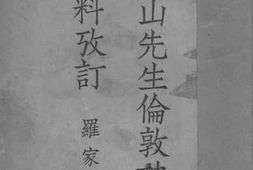 山先生倫敦
料攷訂
羅家